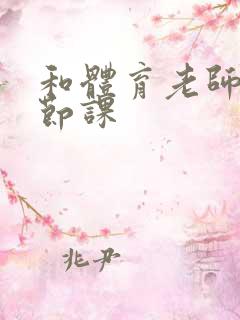 和體育老師
節課
兆尹